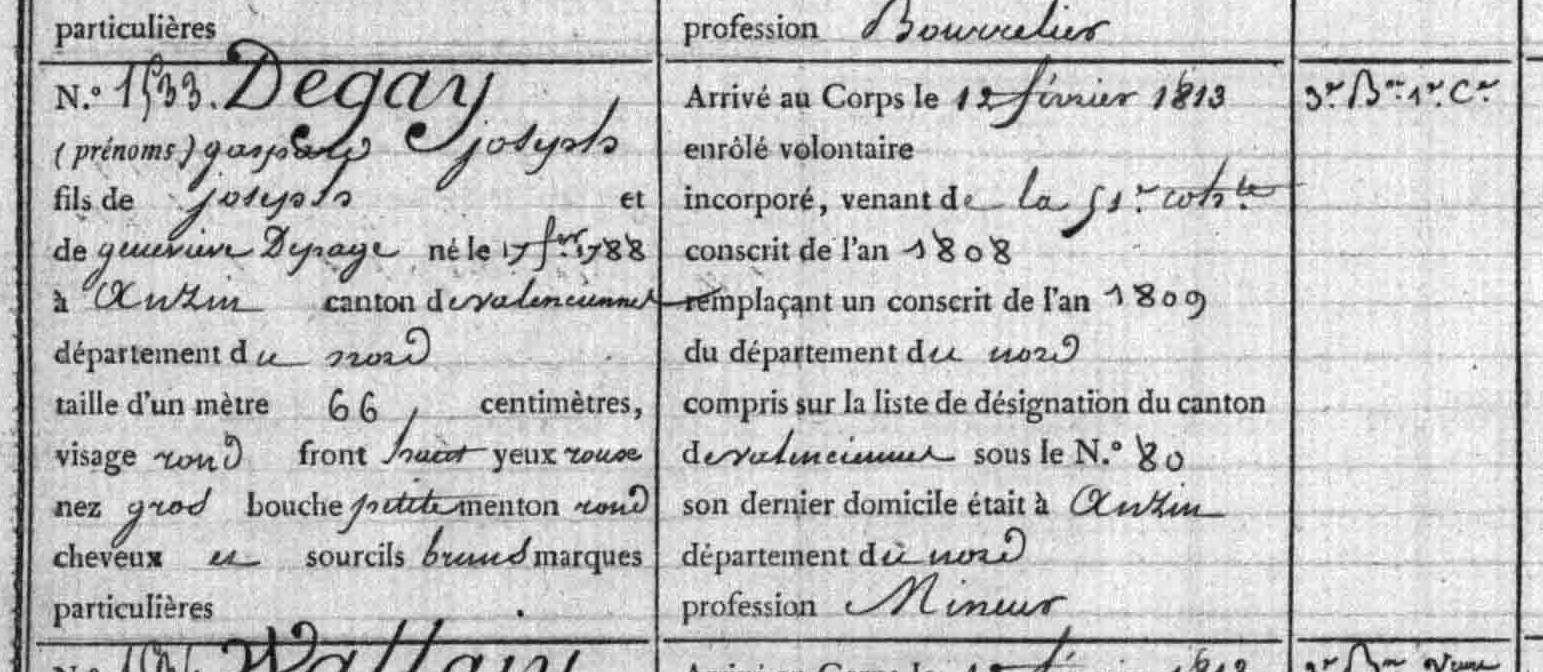 particulières
N.° 1533. Degay
(prénoms) gaspard joseph
fils de joseph et
de genevieve Depage né le 17 f.er 1788
à Anzin canton de valenciennes
département du nord
taille d'un mètre 66, centimètres,
visage rond front haut yeux roux
nez gros bouche petite menton rond
cheveux et sourcils bruns marques
particulières
profession Bourrelier
Arrivé au Corps le 12 février 1813
enrôlé volontaire
incorporé, venant de la 51.e coh.te
conscrit de l'an 1808
remplaçant un conscrit de l'an 1809
du département du nord
compris sur la liste de désignation du canton
de valenciennes sous le N.° 80
son dernier domicile était à Anzin
département du nord
profession Mineur
3.e B.on 1.re C.ie
N.°
Arrivé au Corps le 12 février 1813